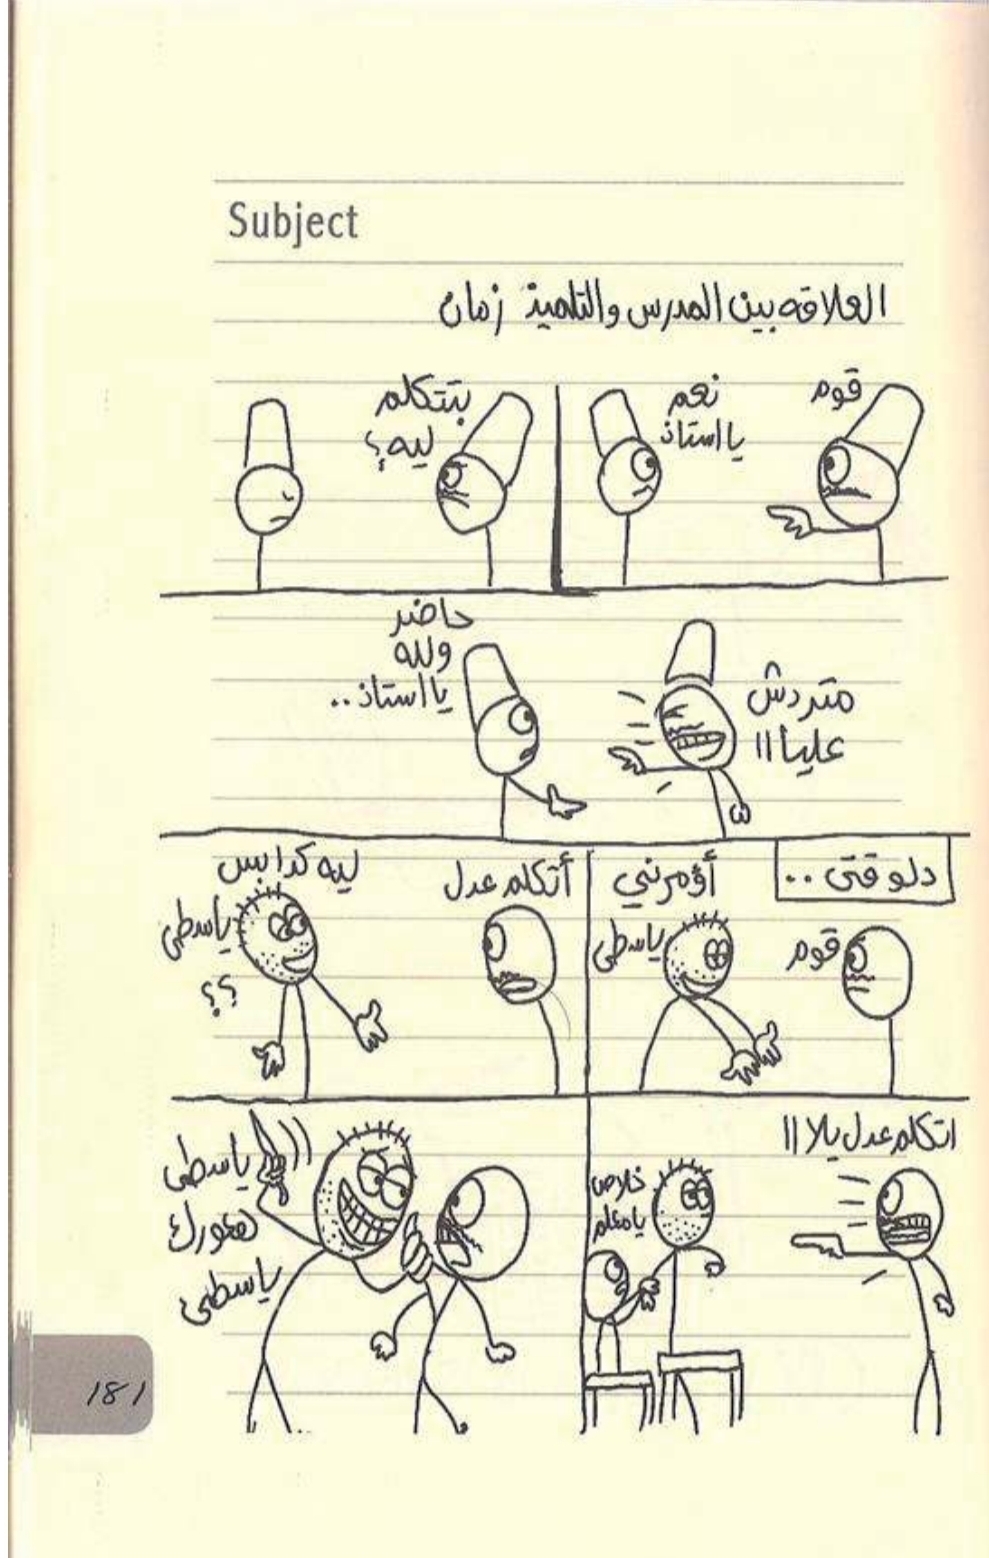 Subject
العلاقه بين المدرس والتلميذ زمان
قوم
نعم
يا استاذ
بتتكلم
ليه؟
متردش
عليا !!
حاضر
ولله
يا استاذ..
دلوقتى ..
قوم
أؤمرني
ياسطى
أتكلم عدل
ليه كدا بس
ياسطى
؟؟
اتكلم عدل يلا !!
خلاص
يا معلم
ياسطى
هعورك
ياسطى
181